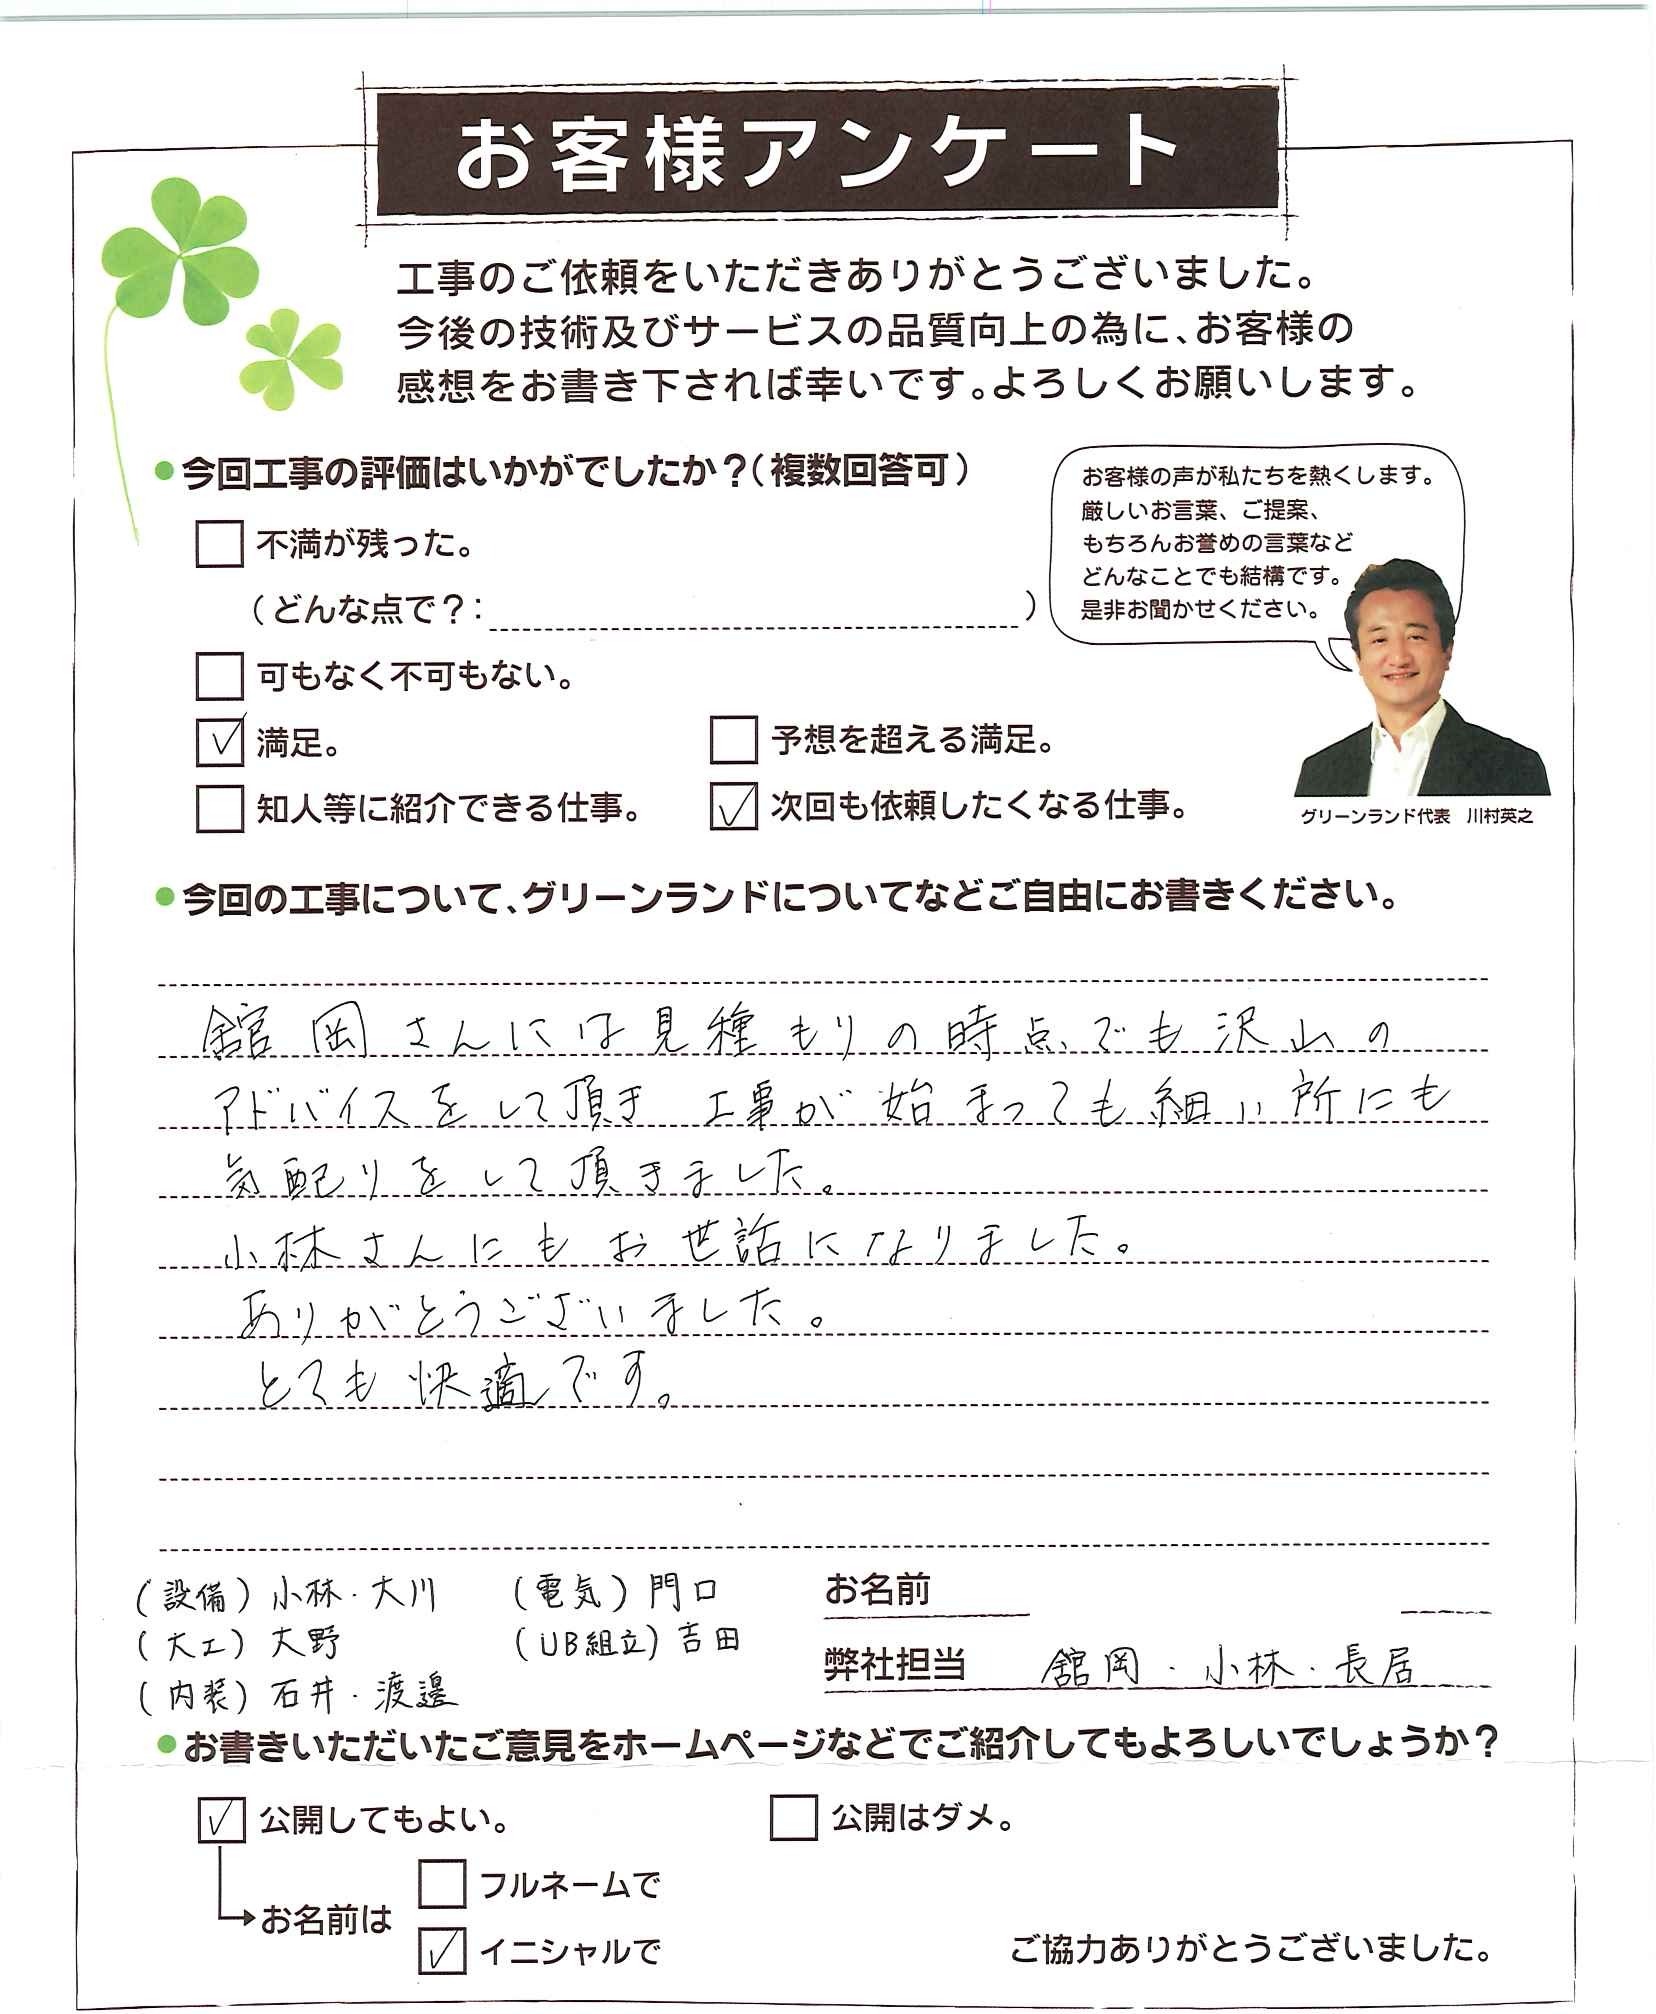 お客様アンケート
工事のご依頼をいただきありがとうございました。
今後の技術及びサービスの品質向上の為に、お客様の
感想をお書き下されば幸いです。よろしくお願いします。
●今回工事の評価はいかがでしたか？（複数回答可）
お客様の声が私たちを熱くします。
厳しいお言葉、ご提案、
もちろんお誉めの言葉など
どんなことでも結構です。
是非お聞かせください。
□ 不満が残った。
（どんな点で？：　）
□ 可もなく不可もない。
☑ 満足。 □ 予想を超える満足。
□ 知人等に紹介できる仕事。 ☑ 次回も依頼したくなる仕事。
グリーンランド代表　川村英之
●今回の工事について、グリーンランドについてなどご自由にお書きください。
舘岡さんには見種もりの時点でも沢山の
アドバイスをして頂き 工事が始まっても細い所にも
気配りをして頂きました。
小林さんにもお世話になりました。
ありがとうございました。
とても快適です。
（設備）小林・大川　（電気）門口
（大工）大野　（UB組立）吉田
（内装）石井・渡邉
お名前
弊社担当　舘岡・小林・長居
●お書きいただいたご意見をホームページなどでご紹介してもよろしいでしょうか？
☑ 公開してもよい。 □ 公開はダメ。
→お名前は
□ フルネームで
☑ イニシャルで
ご協力ありがとうございました。